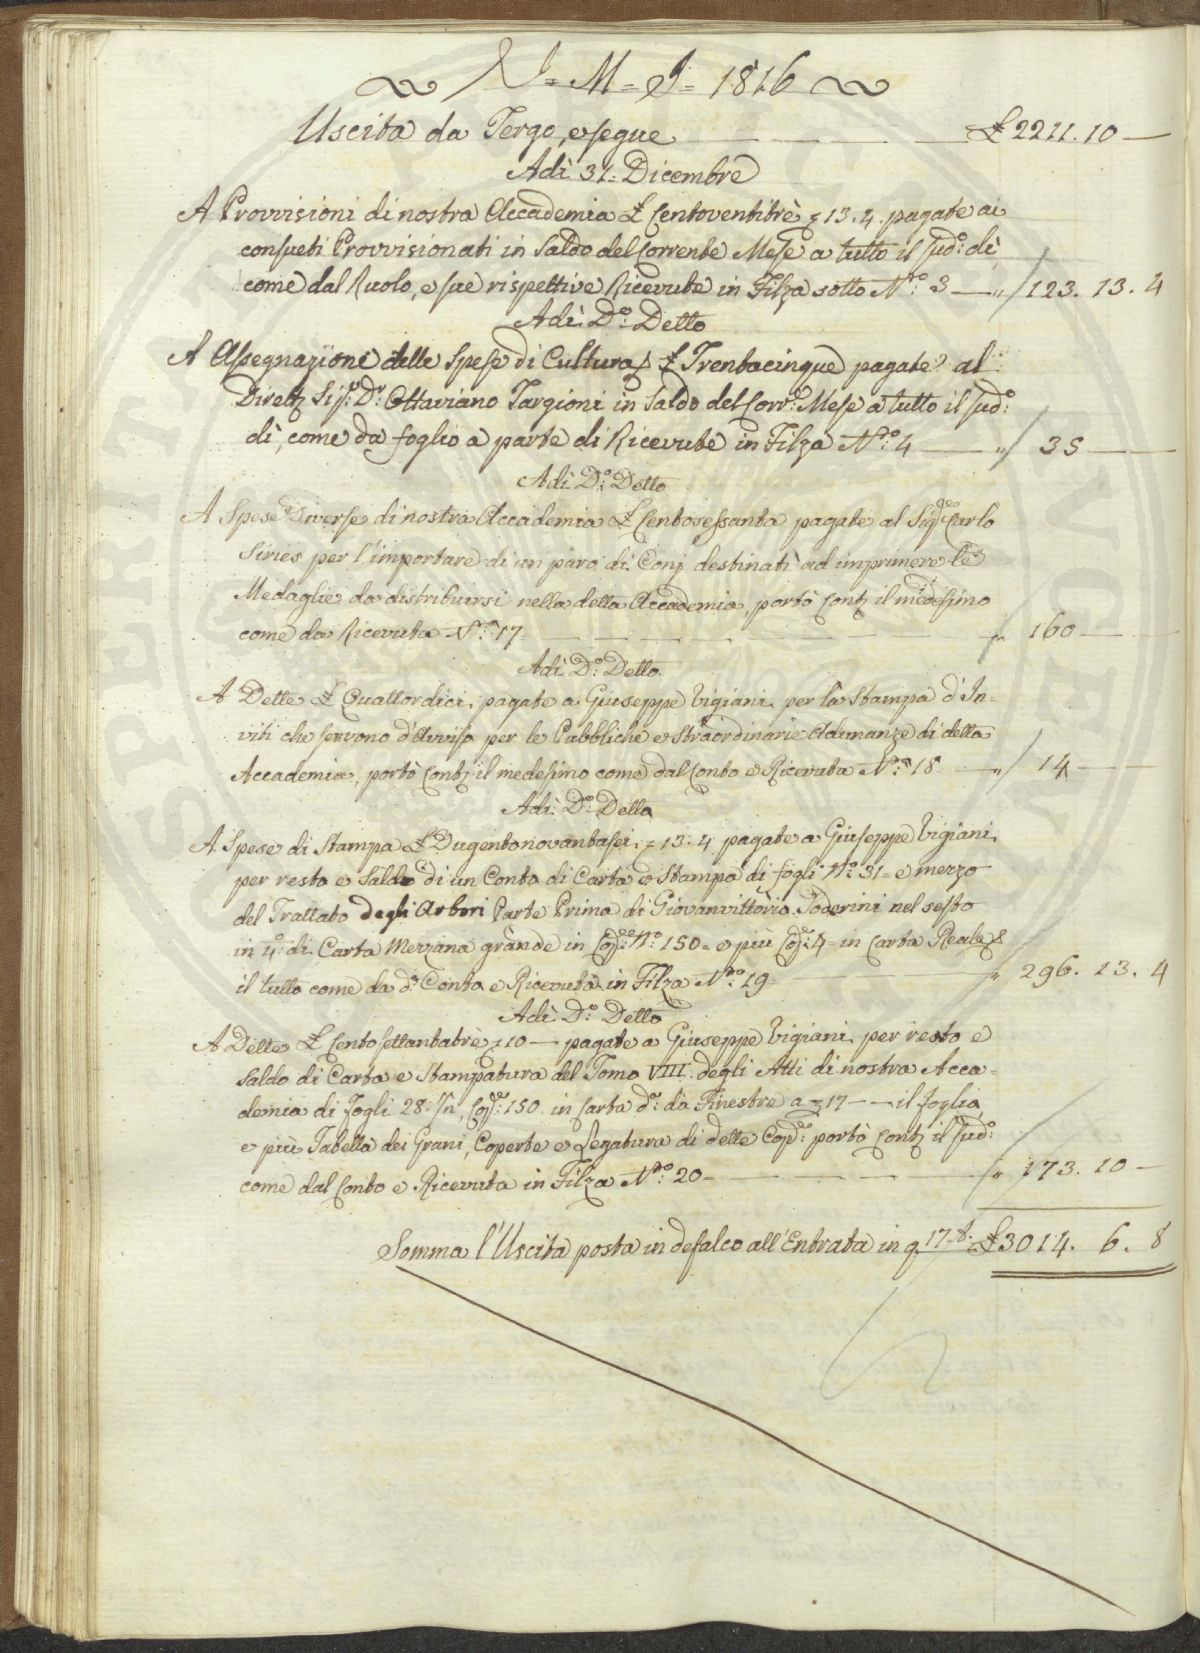 J = M = J = 1816
Uscita da Tergo, e segue ₤ 2211.10 —
Adì 31 = Dicembre
A Provvisioni di nostra Accademia ₤ Centoventitrè = 13.4. pagate ai
consueti Provvisionati in Saldo del Corrente Mese a tutto il sud:° dì,
come dal Ruolo, e sue rispettive Ricevute in Filza sotto N:° 3 — „ 123. 13. 4
Adì D:° Detto
A Assegnazione delle Spese di Cultura ₤ Trentacinque pagate al
Direttʳ Sigʳ: Dʳ: Ottaviano Targioni in Saldo del Corrᵉ: Mese a tutto il sud:°
dì, come da foglio a parte di Ricevute in Filza N:° 4 — „ 35 —
Adì D:° Detto
A Spese Diverse di nostra Accademia ₤ Centosessanta pagate al Sigʳ: Carlo
Siries per l'importare di un paro di Conj destinati ad imprimere le
Medaglie da distribuirsi nella detta Accademia, portò Contⁱ il medesimo
come da Ricevuta N:° 17 — „ 160 —
Adì D:° Detto
A Dette ₤ Quattordici, pagate a Giuseppe Tigiani per la Stampa d'In=
viti che servono d'Avviso per le Pubbliche e straordinarie Adunanze di detta
Accademia, portò Contⁱ il medesimo come dal Conto e Ricevuta N:° 18 — „ 14 —
Adì D:° Detto
A Spese di Stampa ₤ Dugentonovantasei = 13:4 pagate a Giuseppe Tigiani,
per resto e Saldo di un Conto di Carta e Stampa di fogli N:° 31 = e mezzo
del Trattato degli Arbori Parte Prima di Giovanvittorio Soderini nel sesto
in 4:° di Carta Mezzana grande in Copᵉ: N:° 150 = e più Copᵉ: 4 = in Carta Reale
il tutto come da d:° Conto e Ricevuta in Filza N:° 19 „ 296. 13. 4
Adì D:° Detto
A Dette ₤ Centosettantatrè = 10 — pagate a Giuseppe Tigiani per resto e
saldo di Carta e Stampatura del Tomo VIII. degli Atti di nostra Acca=
demia di fogli 28: In, Copᵉ: 150 in Carta dᵃ: da Finestre a = 17 — il foglio,
e più Tabella dei Grani, Coperte e Legatura di dette Copᵉ: portò Contⁱ il sud:°
come dal Conto e Ricevuta in Filza N:° 20 — „ 173. 10 —
Somma l'Uscita posta in defalco all'Entrata in q. 178. ₤ 3014. 6. 8